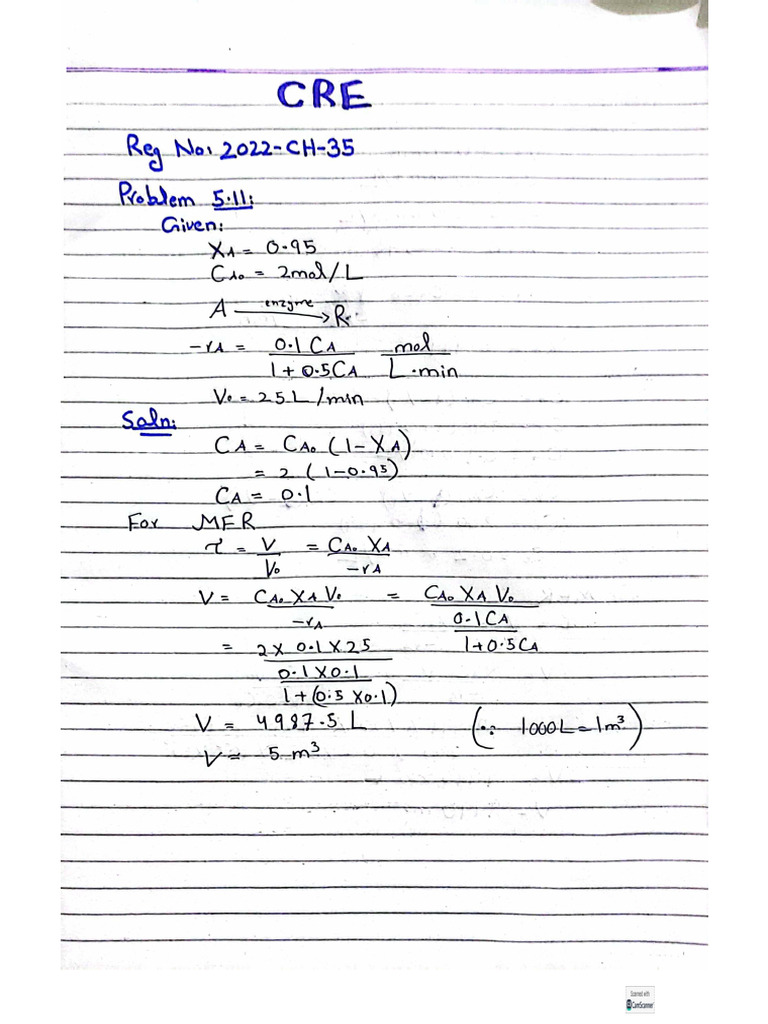 CRE
Reg No: 2022-CH-35
Problem 5.11:
Given:
XA = 0.95
CA₀ = 2mol/L
A —enzyme→ R
-rA = 0.1 CA / 1 + 0.5CA mol / L.min
V₀ = 25L/min
Soln:
CA = CA₀ (1-XA)
= 2 (1-0.95)
CA = 0.1
For MFR
τ = V / V₀ = CA₀ XA / -rA
V = CA₀ XA V₀ / -rA = CA₀ XA V₀ / 0.1CA / 1+0.5CA
= 2 x 0.1 x 25 / 0.1 x 0.1 / 1+(0.5 x0.1)
V = 4987.5 L (∵ 1000L = 1m³)
V = 5 m³
Scanned with
CamScanner